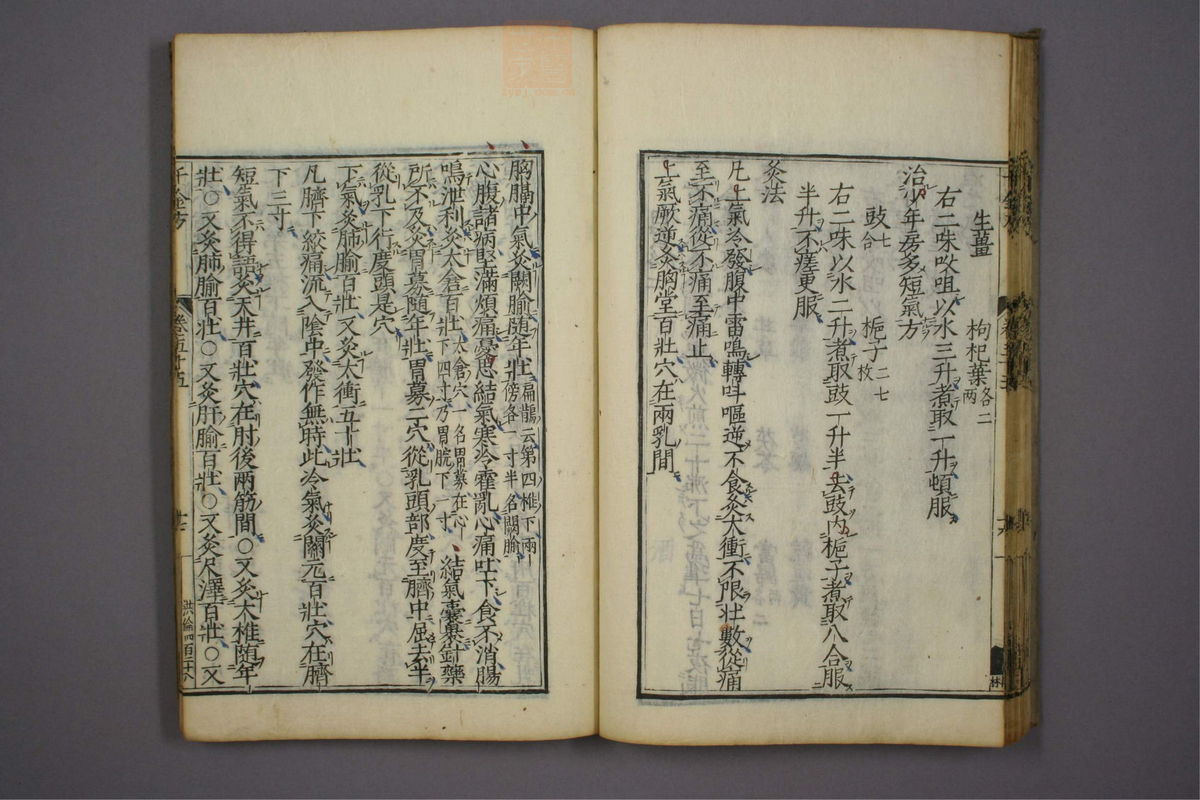 生薑　枸杞葉各二兩
右二味㕮咀以水三升煮取一升頓服
治少年房多短氣方
豉七合　梔子二七枚
右二味以水二升煮取豉一升半去豉内梔子煮取八合服
半升不瘥更服
灸法
凡上氣冷發腹中雷鳴轉叫嘔逆不食灸太衝不限壯數從痛
至不痛從不痛至痛止
上氣厥逆灸胸堂百壯穴在兩乳間
胸膈中氣灸闕腧隨年壯扁鵲云第四椎下兩傍各一寸半名闕腧
心腹諸病堅滿煩痛憂思結氣寒冷霍亂心痛吐下食不消腸
鳴泄利灸太倉百壯太倉穴一名胃募在心下四寸乃胃脘下一寸　結氣囊裹針藥
所不及灸胃募隨年壯胃募二穴從乳頭部度至臍中屈去半
從乳下行度頭是穴
下氣灸肺腧百壯又灸太衝五十壯
凡臍下絞痛流入陰中發作無時此冷氣灸關元百壯穴在臍
下三寸
短氣不得語灸天井百壯穴在肘後兩筋間○又灸大椎隨年
壯○又灸肺腧百壯○又灸肝腧百壯○又灸尺澤百壯○又
千金方　卷五十五
洪倫四百二十八